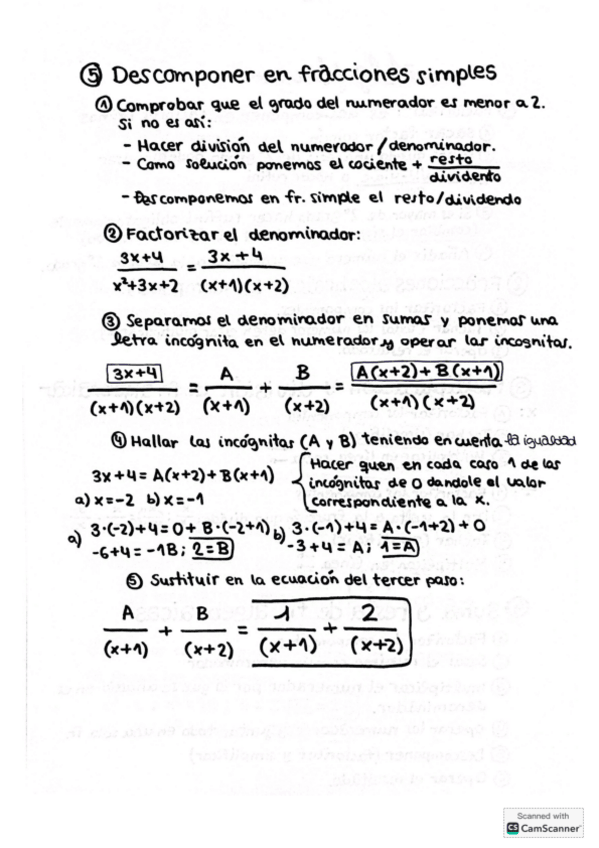 ⑤ Descomponer en fracciones simples
① Comprobar que el grado del numerador es menor a 2.
Si no es así:
- Hacer división del numerador/denominador.
- Como solución ponemos el cociente + resto/dividento
- Descomponemos en fr. simple el resto/dividendo
② Factorizar el denominador:
3x+4 / x²+3x+2 = 3x+4 / (x+1)(x+2)
③ Separamos el denominador en sumas y ponemos una
letra incógnita en el numerador y operar las incognitas.
3x+4 / (x+1)(x+2) = A / (x+1) + B / (x+2) = A(x+2)+B(x+1) / (x+1)(x+2)
④ Hallar las incógnitas (A y B) teniendo en cuenta la igualdad
3x+4=A(x+2)+B(x+1)
a) x=-2 b) x=-1
Hacer quen en cada caso 1 de las
incógnitas de 0 dandole el valor
correspondiente a la x.
a) 3·(-2)+4=0+B·(-2+1)
-6+4=-1B; 2=B
b) 3·(-1)+4=A·(-1+2)+0
-3+4=A; 1=A
⑤ Sustituir en la ecuación del tercer paso:
A / (x+1) + B / (x+2) = 1 / (x+1) + 2 / (x+2)
Scanned with
CS CamScanner